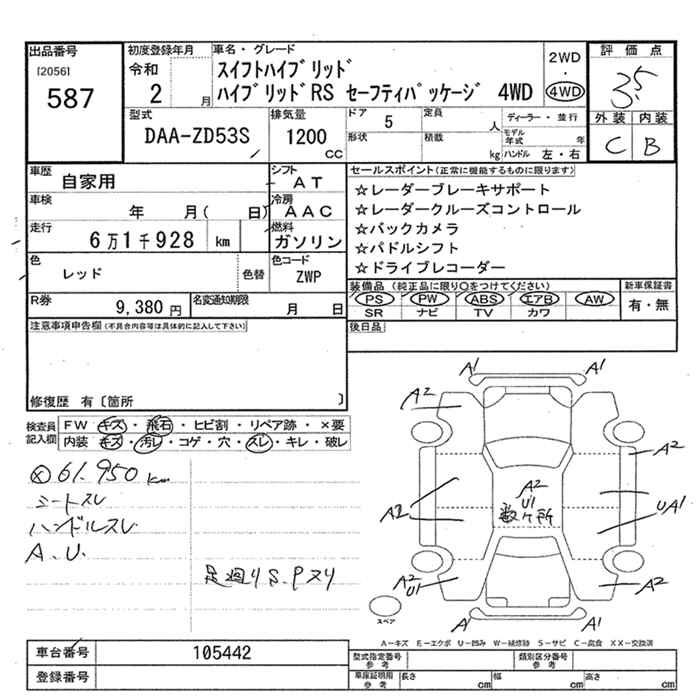 出品番号
[2056]
587
初度登録年月
令和
2 月
車名・グレード
スイフトハイブリッド
ハイブリッドRS セーフティパッケージ 4WD
2WD
・
4WD
評価点
3.5
外装 内装
C B
型式
DAA-ZD53S
排気量
1200
CC
ドア
5
形状
定員
人
積載
kg
ディーラー・並行
モデル年式 年
ハンドル 左・右
車歴
自家用
シフト
AT
車検
年 月( 日)
冷房
AAC
走行
6万1千928 km
燃料
ガソリン
色
レッド
色替
色コード
ZWP
R券
9,380 円
名変通知期限
月 日
セールスポイント(正常に機能するものに限ります)
☆レーダーブレーキサポート
☆レーダークルーズコントロール
☆バックカメラ
☆パドルシフト
☆ドライブレコーダー
装備品(純正品に限り〇をつけてください)
PS PW ABS エアB AW
SR ナビ TV カワ
新車保証書
有・無
後日品
注意事項申告欄(不具合内容等は具体的に記入して下さい)
修復歴 有〔箇所 〕
検査員記入欄
FW キズ・飛石・ヒビ割・リペア跡・×要
内装 キズ・汚レ・コゲ・穴・スレ・キレ・破レ
61.950 km
シートスレ
ハンドルスレ
A.U.
足廻りS.Pスリ
A1 A1
A2
A2
A2
U1
数ヶ所
A2
UA1
A2
U1
A2
A1 A1
スペア
A-キズ E-エクボ U-凹み W-補修跡 S-サビ C-腐食 XX-交換済
車台番号
105442
登録番号
型式指定番号
参考
類別区分番号
参考
車庫証明用
参考
長さ cm
幅 cm
高さ cm